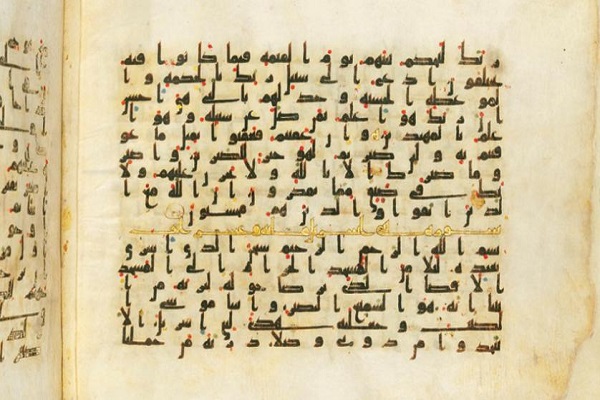 ربك ليحكم بينهم يوم القيمة فيما كانوا فيه
يختلفون ادع الى سبيل ربك بالحكمة وا
لموعظة الحسنة وجدلهم بالتى هى احسن
ان ربك هو اعلم بمن ضل عن سبيله وهو ا
علم بالمهتدين وان عقبتم فعقبوا بمثل ما عو
قبتم به ولئن صبرتم لهو خير للصبرين واصبر
وما صبرك الا بالله ولا تحزن عليهم ولا
تك فى ضيق مما يمكرون ان الله مع ا
لذين اتقوا والذين هم محسنون
سورة بنى اسريل
بسم الله الرحمن الرحيم سبحن الذى اسرى
بعبده ليلا من المسجد الحرام الى المسجد
الاقصا الذى بركنا حوله لنريه من ا
يتنا انه هو السميع البصير واتينا موسى ا
لكتب وجعلنه هدى لبنى اسريل الا
تتخذوا من دونى وكيلا ذرية من حملنا